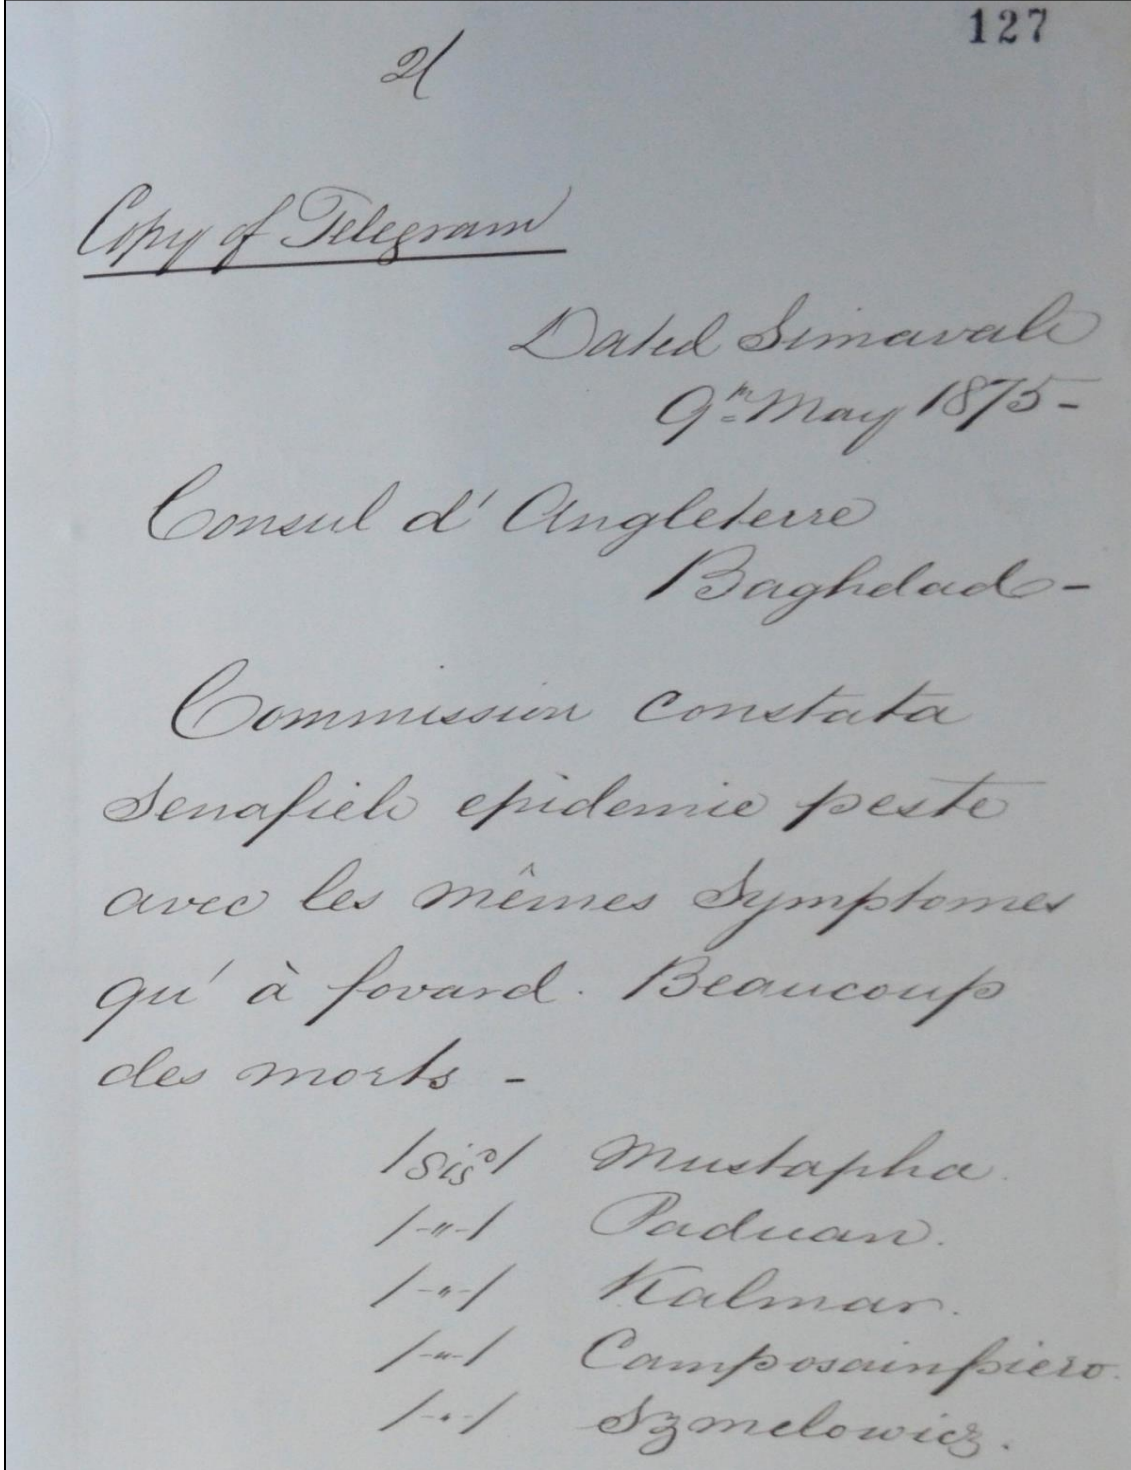 127
2/
Copy of Telegram
Dated Simavali
9th May 1875-
Consul d' Angleterre
Baghdad-
Commission constata
Senafieh epidemie peste
avec les mêmes Symptomes
qu' à fovard. Beaucoup
des morts -
/Sigd/ Mustapha.
/-"-/ Paduan.
/-"-/ Kalmar.
/-"-/ Camposainpiero.
/-"-/ Szmelowicz.